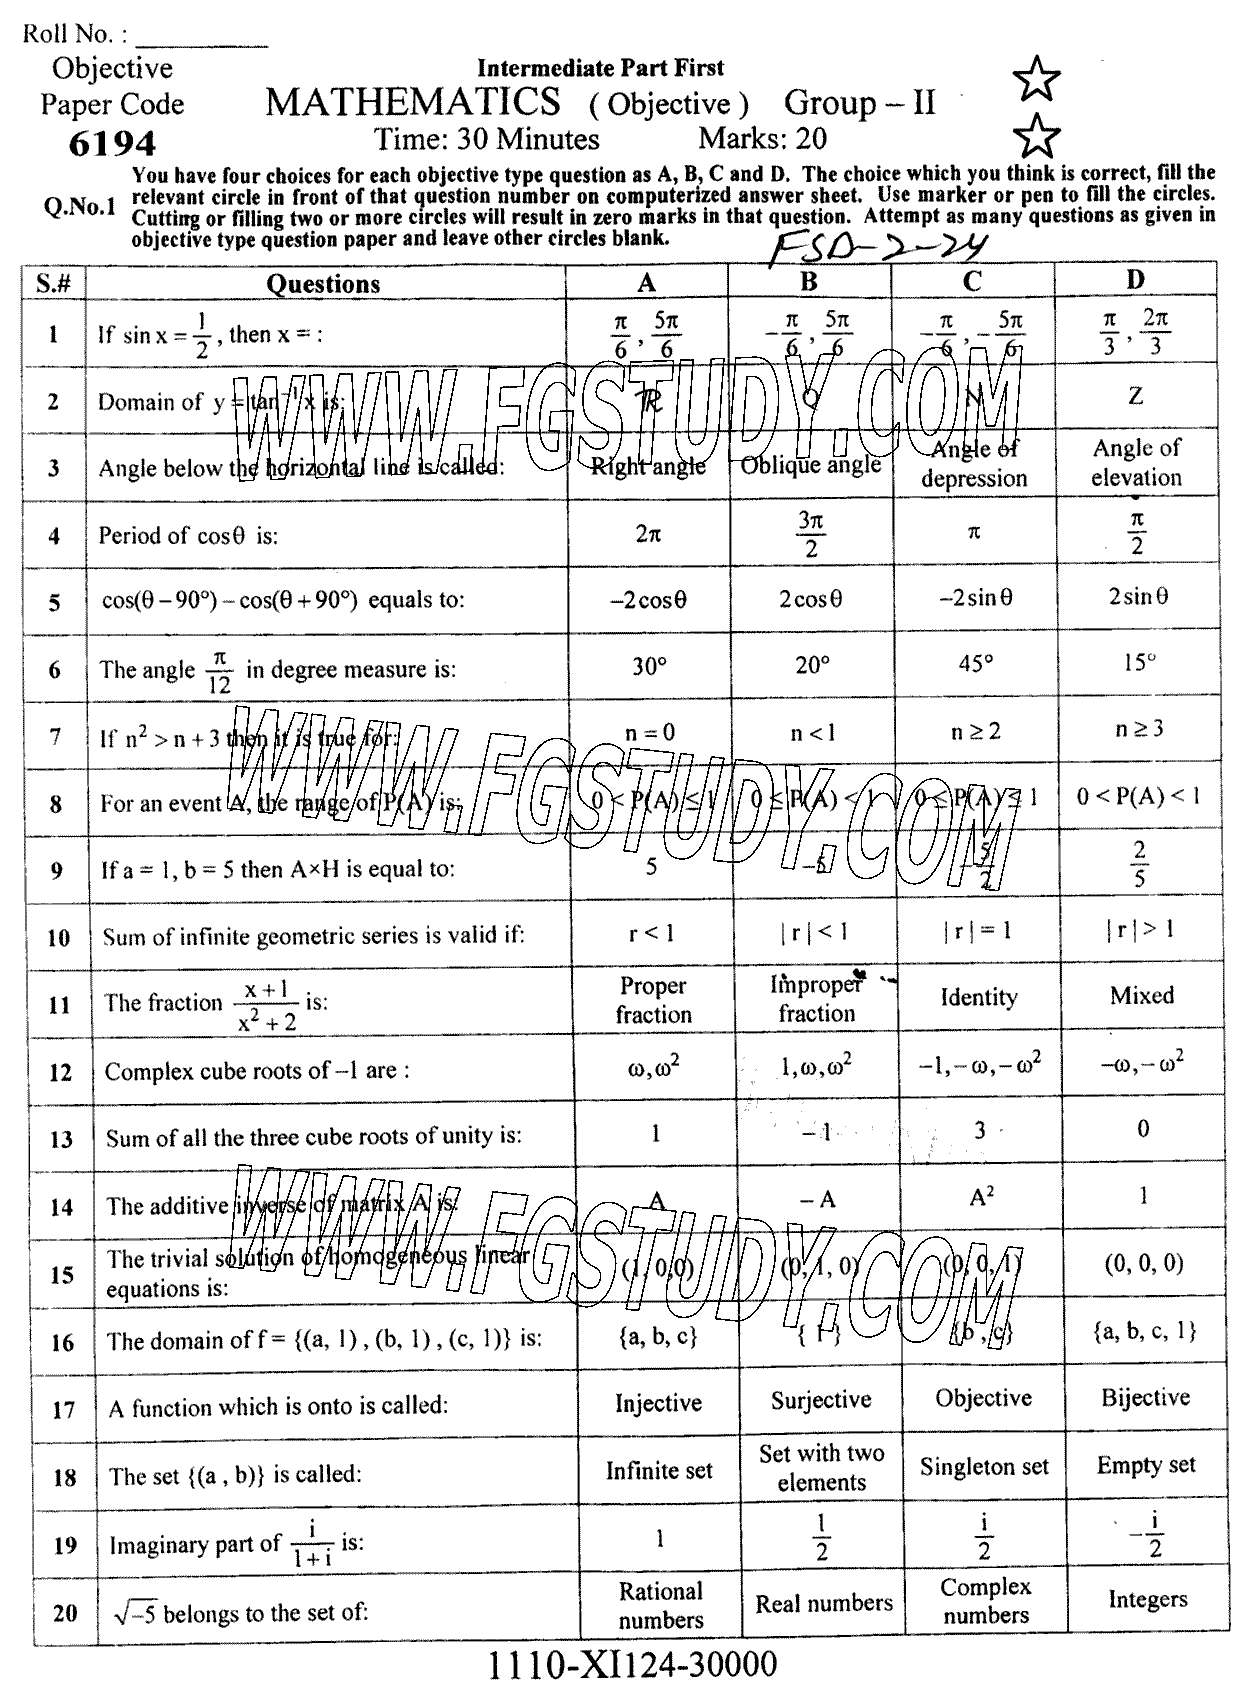 Roll No. : ___________
Objective
Paper Code
6194
Intermediate Part First
MATHEMATICS ( Objective ) Group – II
Time: 30 Minutes Marks: 20
Q.No.1 You have four choices for each objective type question as A, B, C and D. The choice which you think is correct, fill the
relevant circle in front of that question number on computerized answer sheet. Use marker or pen to fill the circles.
Cutting or filling two or more circles will result in zero marks in that question. Attempt as many questions as given in
objective type question paper and leave other circles blank.
FSD-2-24
S.# Questions A B C D
1 If sin x = 1/2 , then x = : π/6 , 5π/6 -π/6 , 5π/6 -π/6 , -5π/6 π/3 , 2π/3
2 Domain of y = tan⁻¹x is: R Q N Z
3 Angle below the horizontal line is called: Right angle Oblique angle Angle of depression Angle of elevation
4 Period of cosθ is: 2π 3π/2 π π/2
5 cos(θ – 90°) – cos(θ + 90°) equals to: –2cosθ 2cosθ –2sinθ 2sinθ
6 The angle π/12 in degree measure is: 30° 20° 45° 15°
7 If n² > n + 3 then it is true for: n = 0 n < 1 n ≥ 2 n ≥ 3
8 For an event A, the range of P(A) is: 0 < P(A) ≤ 1 0 ≤ P(A) < 1 0 ≤ P(A) ≤ 1 0 < P(A) < 1
9 If a = 1, b = 5 then A×H is equal to: 5 –5 -5/2 2/5
10 Sum of infinite geometric series is valid if: r < 1 | r | < 1 | r | = 1 | r | > 1
11 The fraction x+1/x²+2 is: Proper fraction Improper fraction Identity Mixed
12 Complex cube roots of –1 are : ω, ω² 1, ω, ω² –1, – ω, – ω² –ω, – ω²
13 Sum of all the three cube roots of unity is: 1 – 1 3 0
14 The additive inverse of matrix A is: A – A A² 1
15 The trivial solution of homogeneous linear equations is: (1, 0,0) (0, 1, 0) (0, 0, 1) (0, 0, 0)
16 The domain of f = {(a, 1) , (b, 1) , (c, 1)} is: {a, b, c} { 1 } {b , c} {a, b, c, 1}
17 A function which is onto is called: Injective Surjective Objective Bijective
18 The set {(a , b)} is called: Infinite set Set with two elements Singleton set Empty set
19 Imaginary part of i/1+i is: 1 1/2 i/2 -i/2
20 √–5 belongs to the set of: Rational numbers Real numbers Complex numbers Integers
1110-XI124-30000
WWW.FGSTUDY.COM
WWW.FGSTUDY.COM
WWW.FGSTUDY.COM